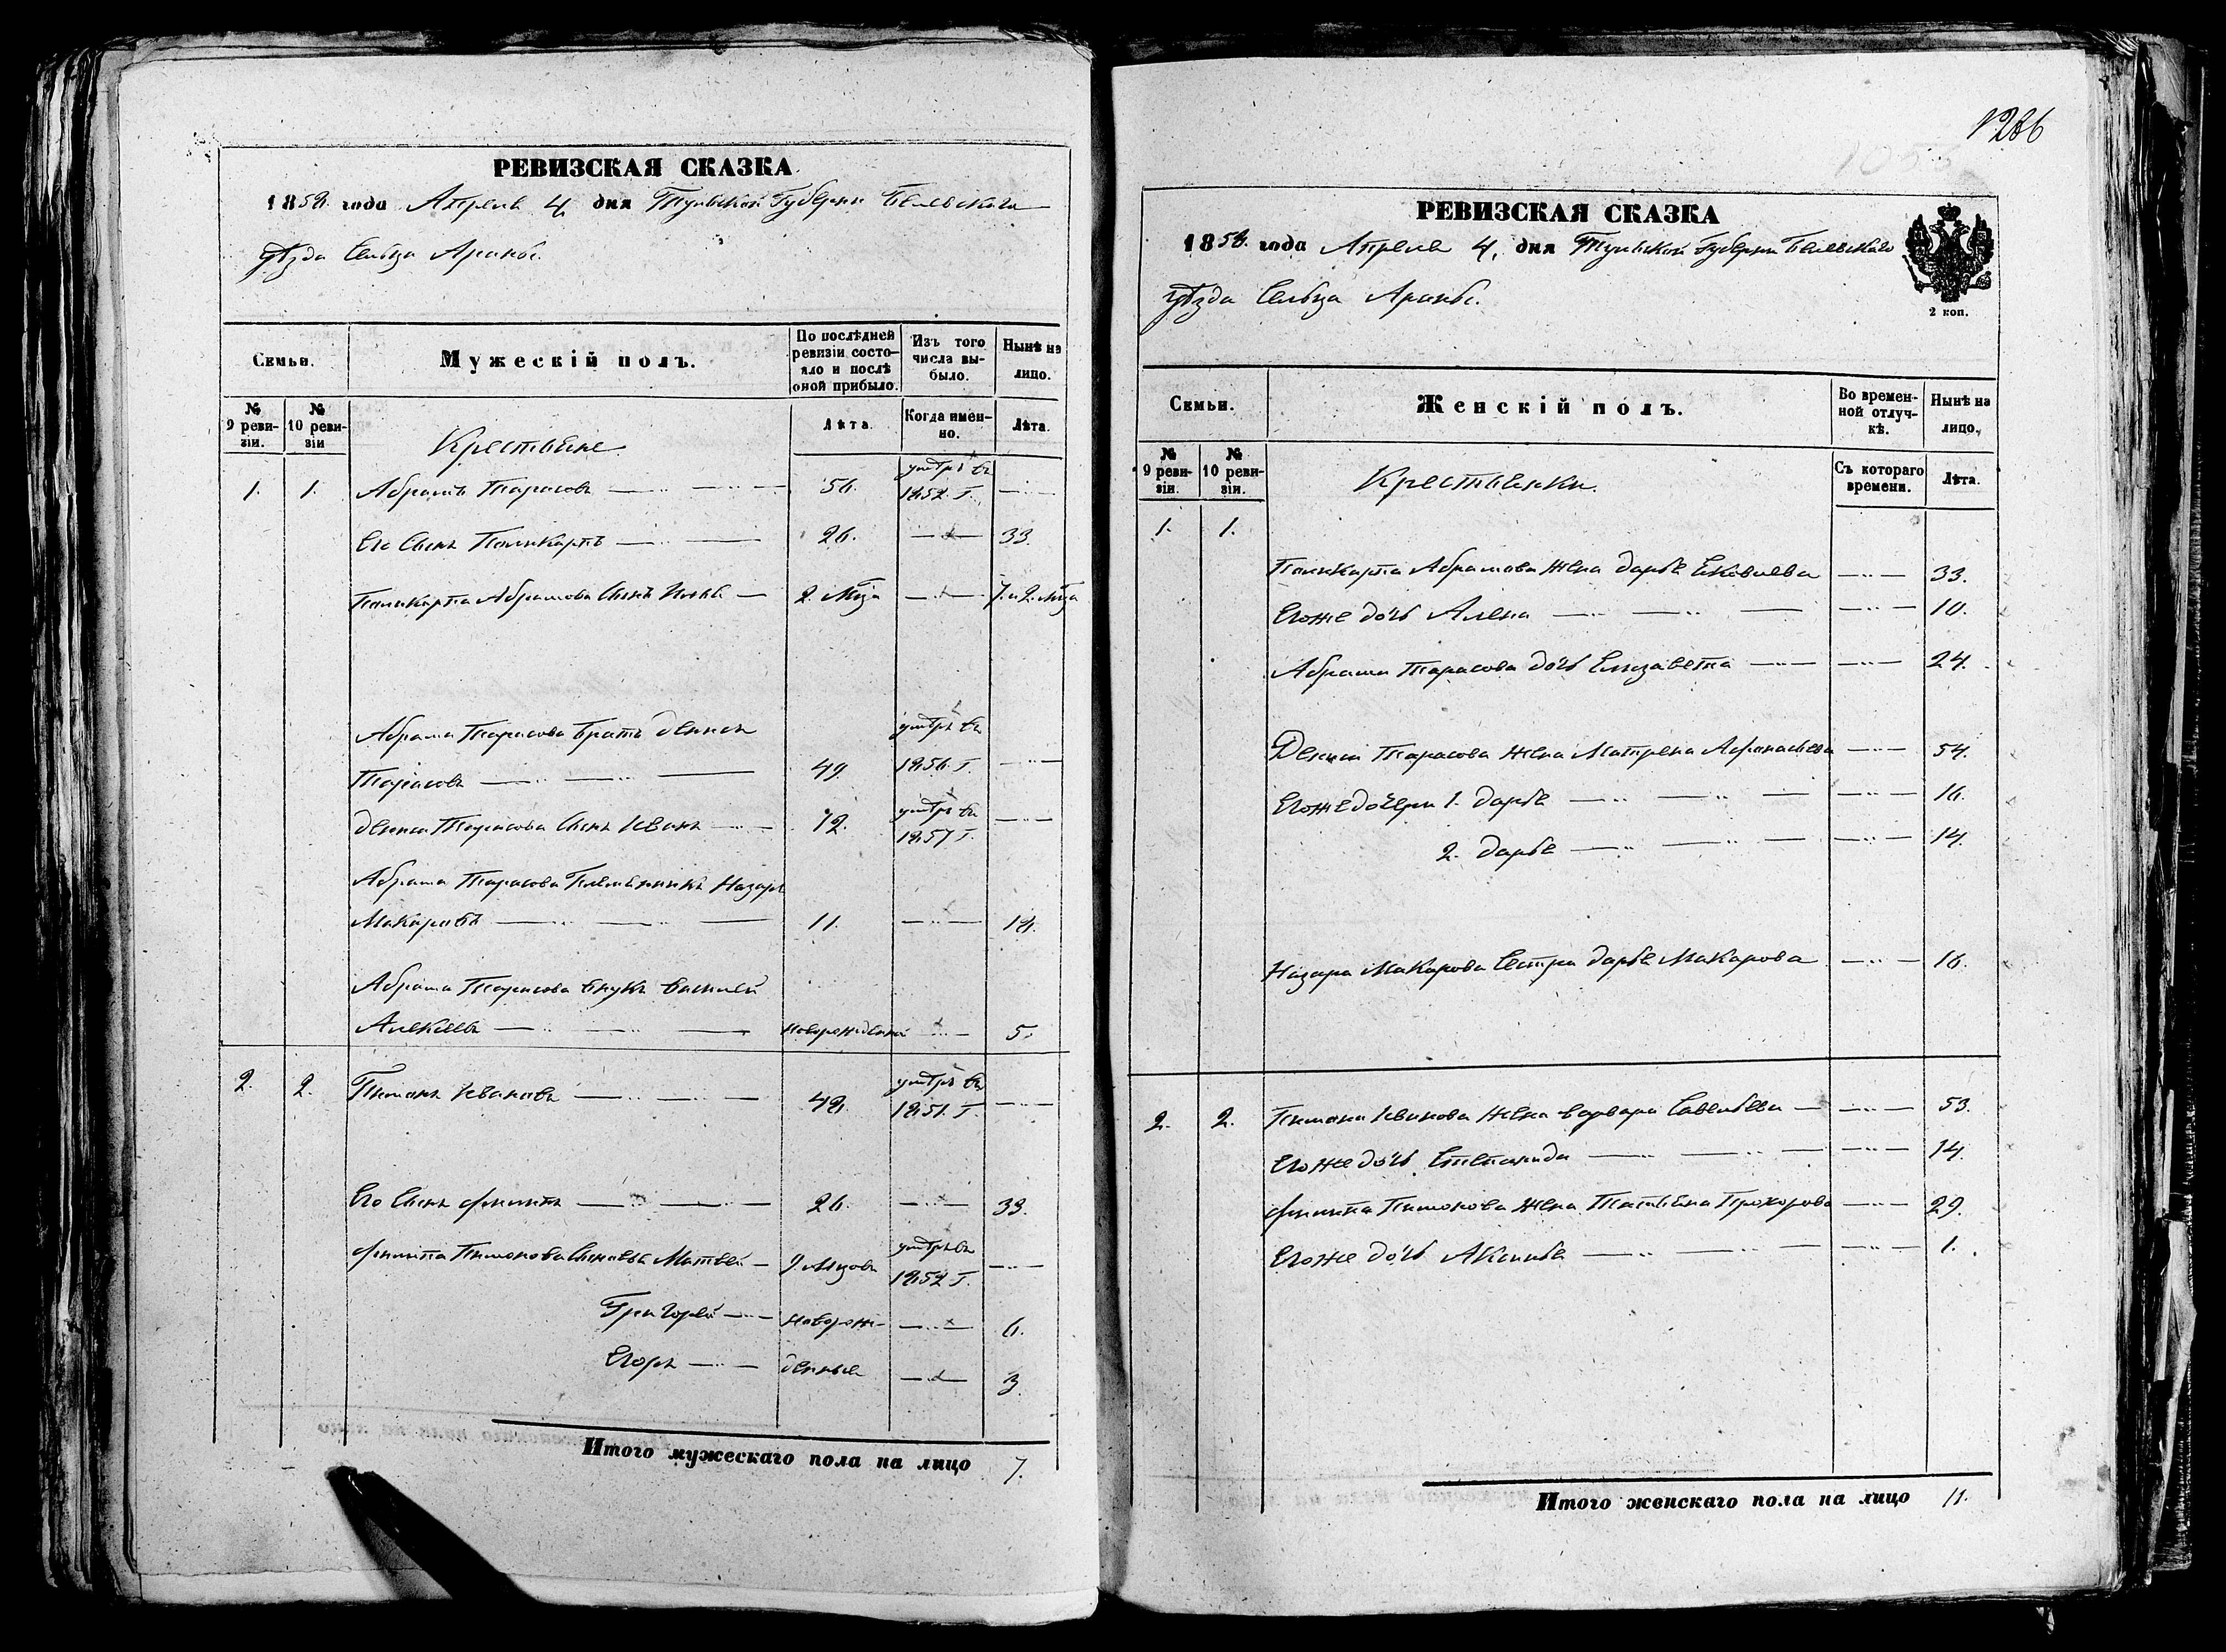 РЕВИЗСКАЯ СКАЗКА
1858. года Апреля 4 дня Тульской Губернии Белевского
уѣзда Сельца
Семьи.
Мужескій полъ.
По послѣдней ревизіи состояло и послѣ оной прибыло.
Изъ того числа выбыло.
Нынѣ на лицо.
№ 9 ревизіи.
№ 10 ревизіи
Лѣта.
Когда именно.
Лѣта.
Крестьяне
1. 1. Абрамъ Тарасовъ 56. умеръ въ 1852. г.
Его Сынъ Поликарпъ 26. 33.
Поликарпа Абрамова Сынъ Илья 2. Мца 7. и 2. мца
Абрама Тарасова братъ Денисъ
Тарасовъ 49. умеръ въ 1856. г.
Дениса Тарасова Сынъ Иванъ 12. умеръ въ 1857 г.
Абрама Тарасова Племянникъ Назаръ
Макаровъ 11. 18.
Абрама Тарасова внукъ Василей
Алексеевъ новорожденной 5.
2. 2. Пимонъ Ивановъ 48. умеръ въ 1851. г.
Его Сынъ Филипъ 26. 33.
Филипа Пимонова Сыновья Матвей 9. мцовъ умеръ въ 1852 г.
Григорей новорож- 6.
Егоръ денные 3.
Итого мужескаго пола на лицо 7.
1286
1053
РЕВИЗСКАЯ СКАЗКА
1858. года Апреля 4, дня Тульской Губернии Белевского
уѣзда Сельца
2 коп.
Семьи.
Женскій полъ.
Во временной отлучкѣ.
Нынѣ на лицо.
№ 9 ревизіи.
№ 10 ревизіи.
Съ котораго времени.
Лѣта.
Крестьянки.
1. 1.
Поликарпа Абрамова жена Дарья 33.
Егоже дочь Алена 10.
Абрама Тарасова дочь Елизавета 24.
Дениса Тарасова жена Матрена Афонасьева 54.
Егоже дочери 1. Дарья 16.
2. Дарья 14.
Назара Макарова Сестра Дарья Макарова 16.
2. 2. Пимона Иванова жена Варвара Савельева 53.
Егоже дочь Степанида 14.
Филипа Пимонова жена Татьяна Прохорова 29.
Егоже дочь Аксинья 1.
Итого женскаго пола на лицо 11.